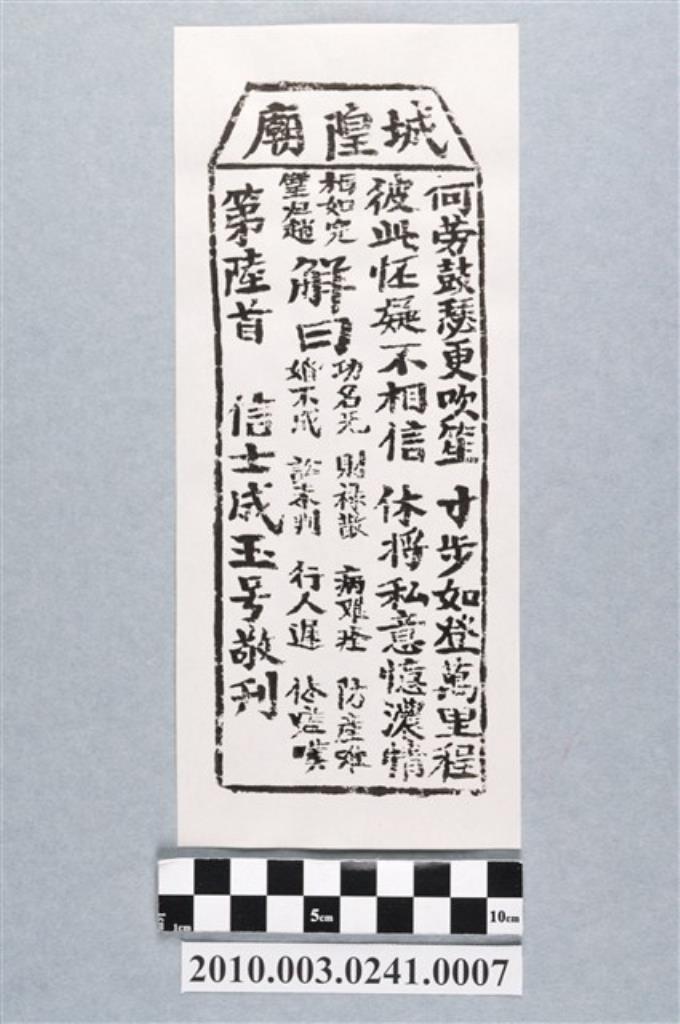 城隍廟
何勞鼓瑟更吹笙 寸步如登萬里程
彼此怀疑不相信 休將私意憶濃情
相如完
璧歸趙
解曰
功名无 財祿散 病难痊 防產难
婚不成 訟未判 行人遲
第陸首 信士成玉号敬刊
1cm 5cm 10cm
2010.003.0241.0007